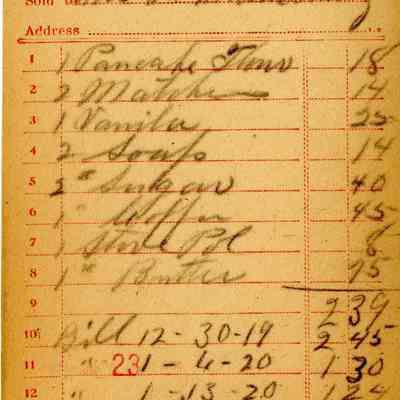 Sold
Address
1 1 Pancake Flour 18
2 2 Matches 14
3 1 Vanila 25
4 2 Soap 14
5 Sugar 40
6 1 45
7 1 Stove Pol 8
8 1 " Butter 75
9 2 39
10 Bill 12-30-19 2 45
11 " 231-4-20 1 30
12 " 1-13-20 1 24